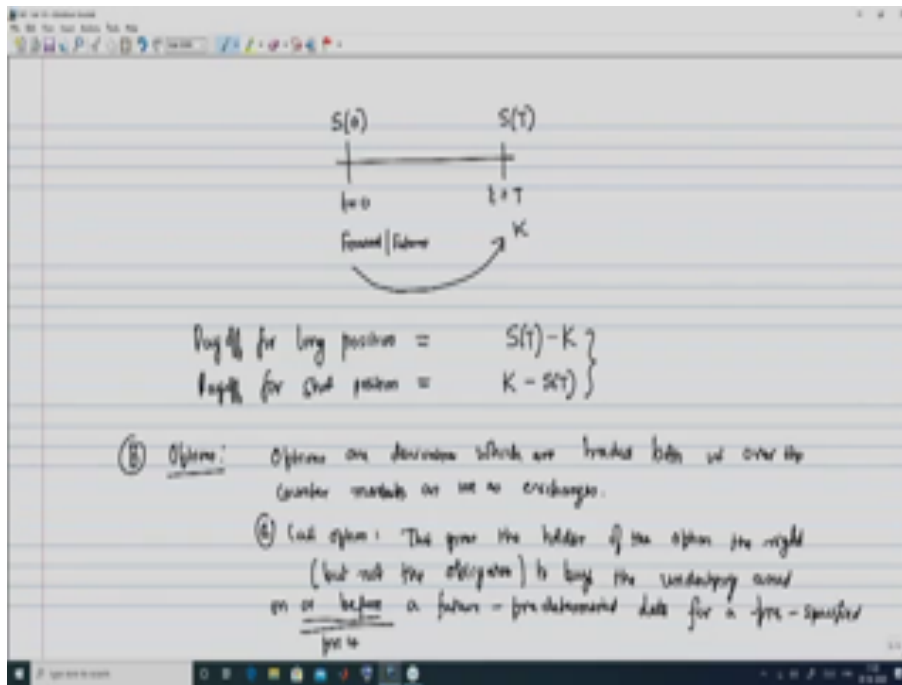 S(0) S(T)
t=0 t=T
Forward | Futures K
Payoff for long position = S(T) - K
Payoff for short position = K - S(T)
(B) Options: Options are derivatives which are traded both over the
counter markets as exchanges.
(a) Call option: This gives the holder of the option the right
(but not the obligation) to buy the underlying asset
on or before a future - pre determined date for a pre - specified